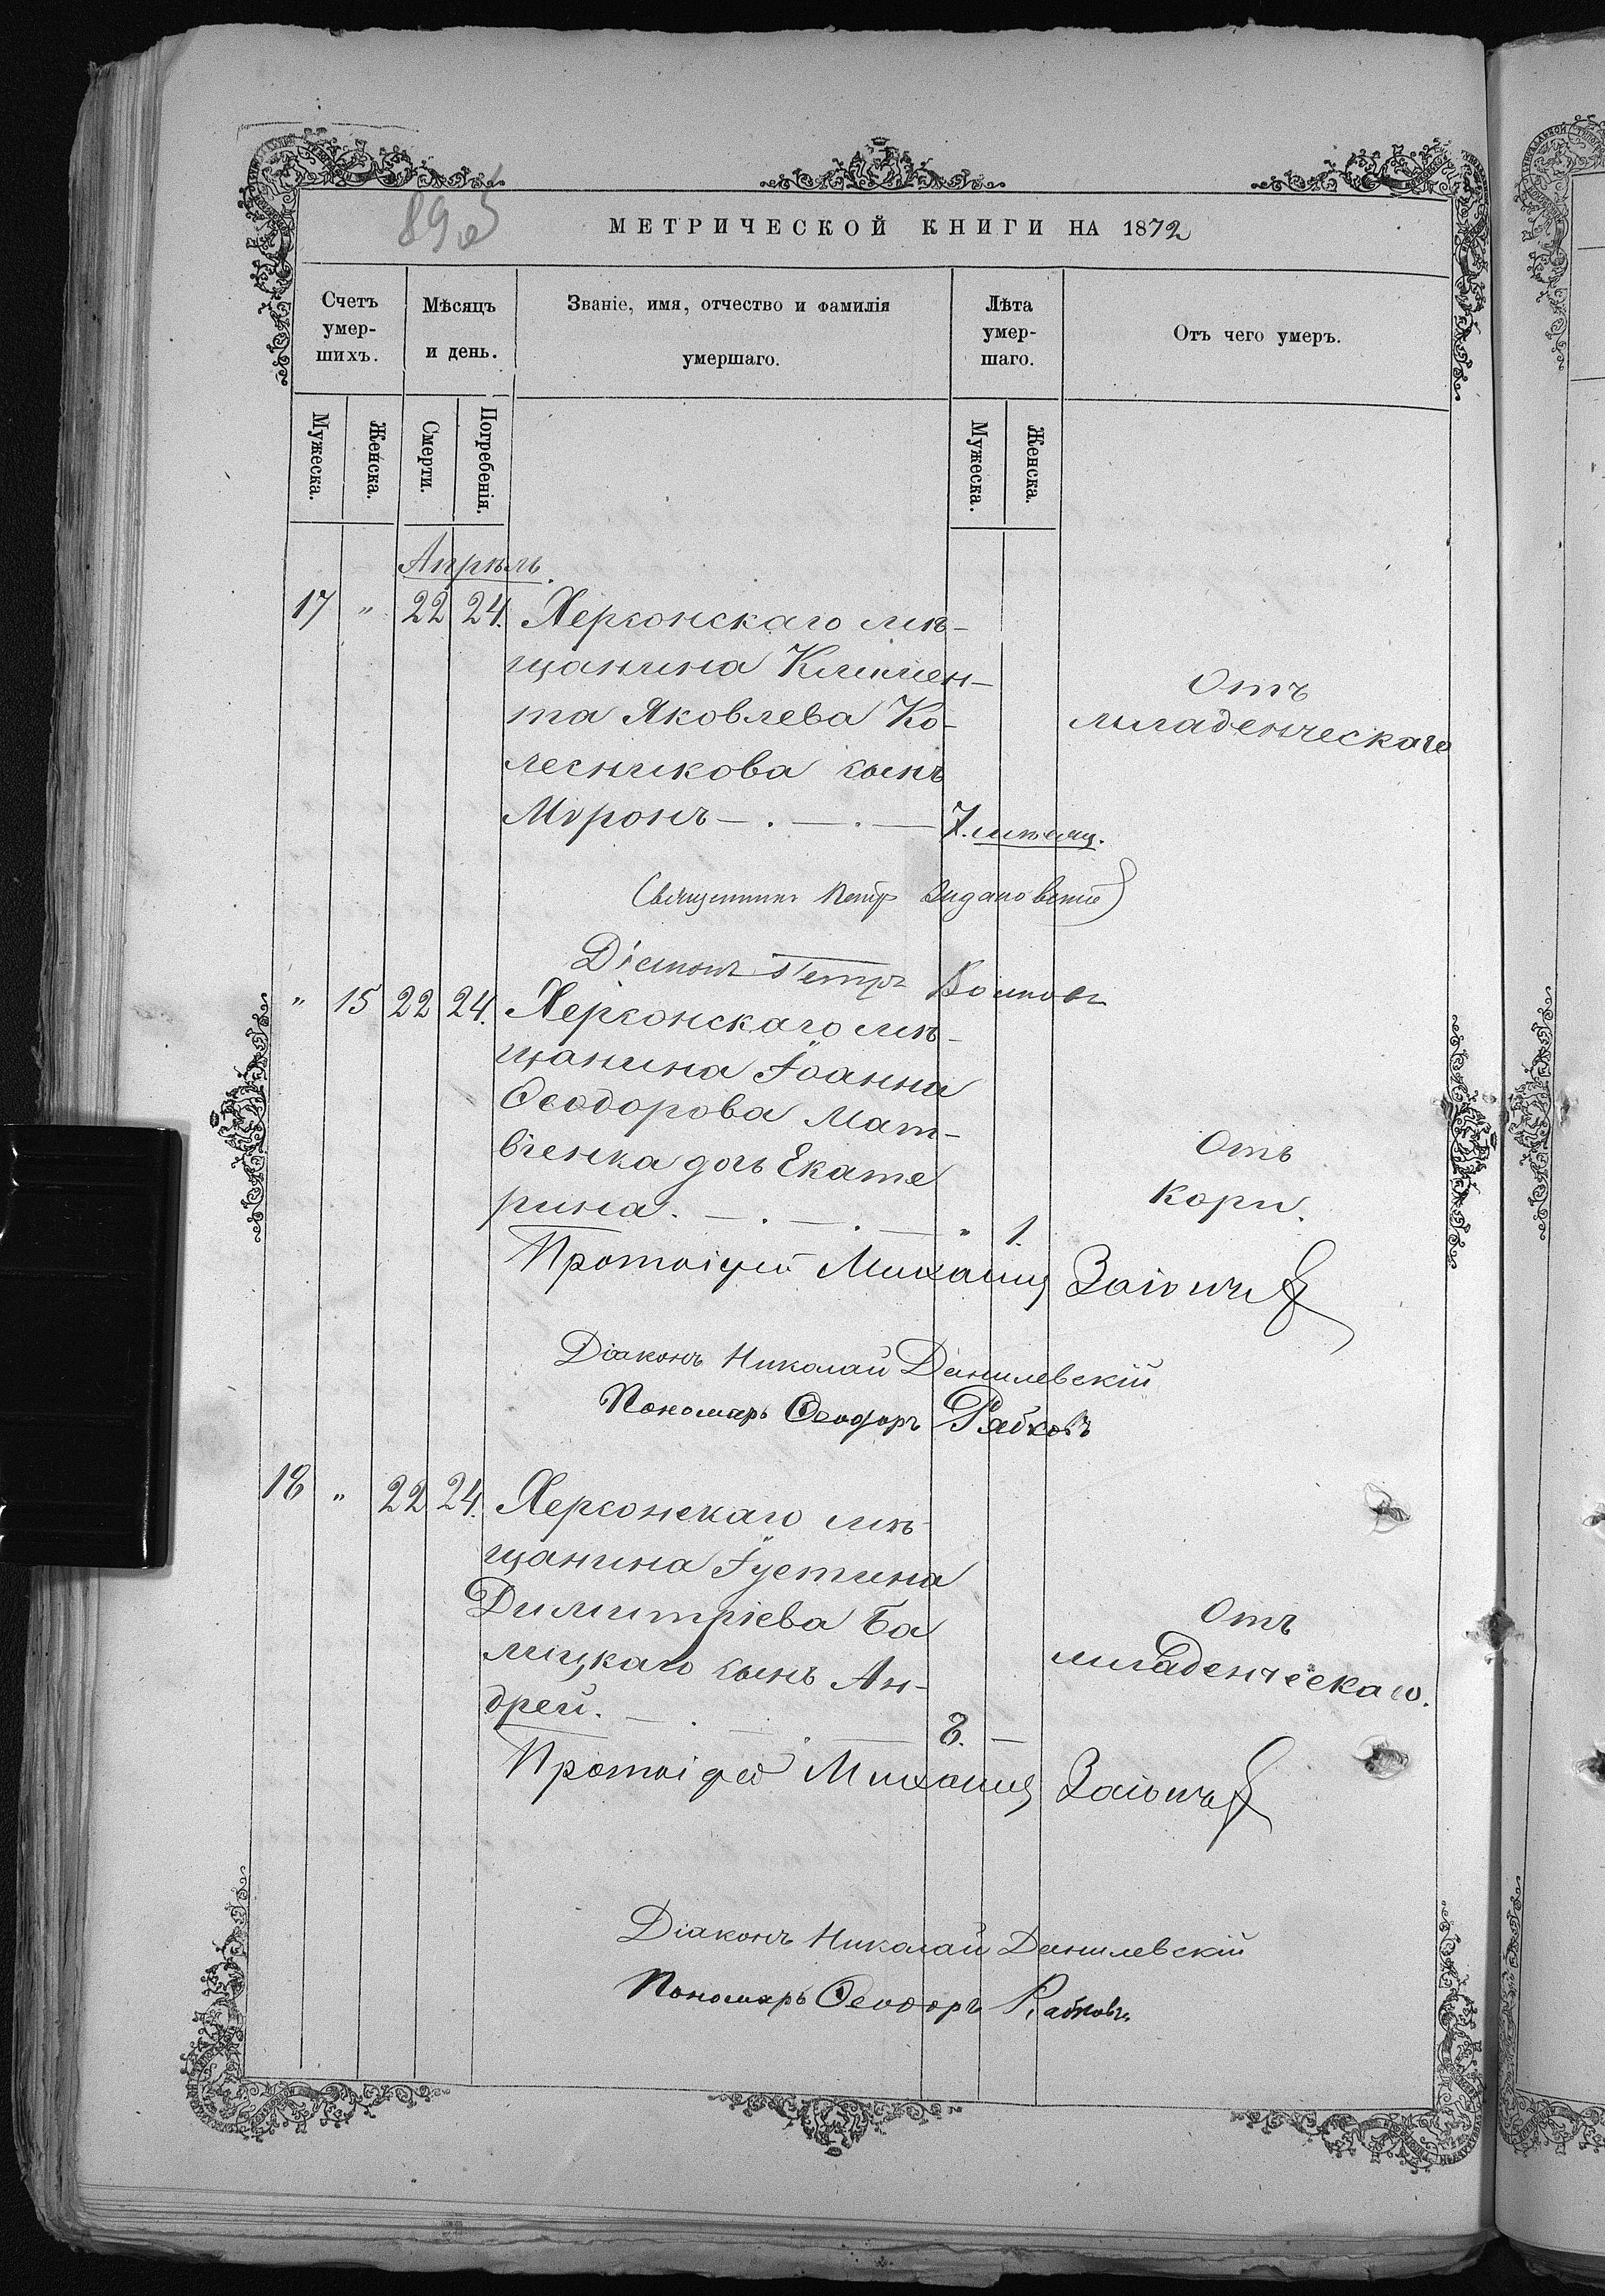 МЕТРИЧЕСКОЙ КНИГИ НА 1872
Счетъ умер-шихъ.
Мѣсяцъ и день.
Званіе, имя, отчество и фамилія умершаго.
Лѣта умер-шаго.
Отъ чего умеръ.
Мужеска.
Женска.
Смерти.
Погребенія.
Мужеска.
Женска.
Апрѣль.
17 " 22 24. Херсонскаго мѣ-
щанина Климен-
та Яковлева Ко-
лесникова сынъ
Мѵронъ 7. мѣсяц.
Отъ
младенческаго
Священникъ Петръ
Діаконъ Петръ Волковъ
" 15 22 24. Херсонскаго мѣ-
щанина Іоанна
Ѳеодорова Мат-
віенка дочь Екате
рина. " 1.
Отъ
кори.
Протоіерей Михаилъ
Діаконъ Николай Данилевскій
Пономарь Ѳеодоръ Рябковъ
18 " 22 24. Херсонскаго мѣ-
щанина Іустина
Димитріева Ба
лицкаго сынъ Ан-
дрей. 8. —
Отъ
младенческаго.
Протоіерей Михаилъ
Діаконъ Николай Данилевскій
Пономарь Ѳеодоръ Рябковъ